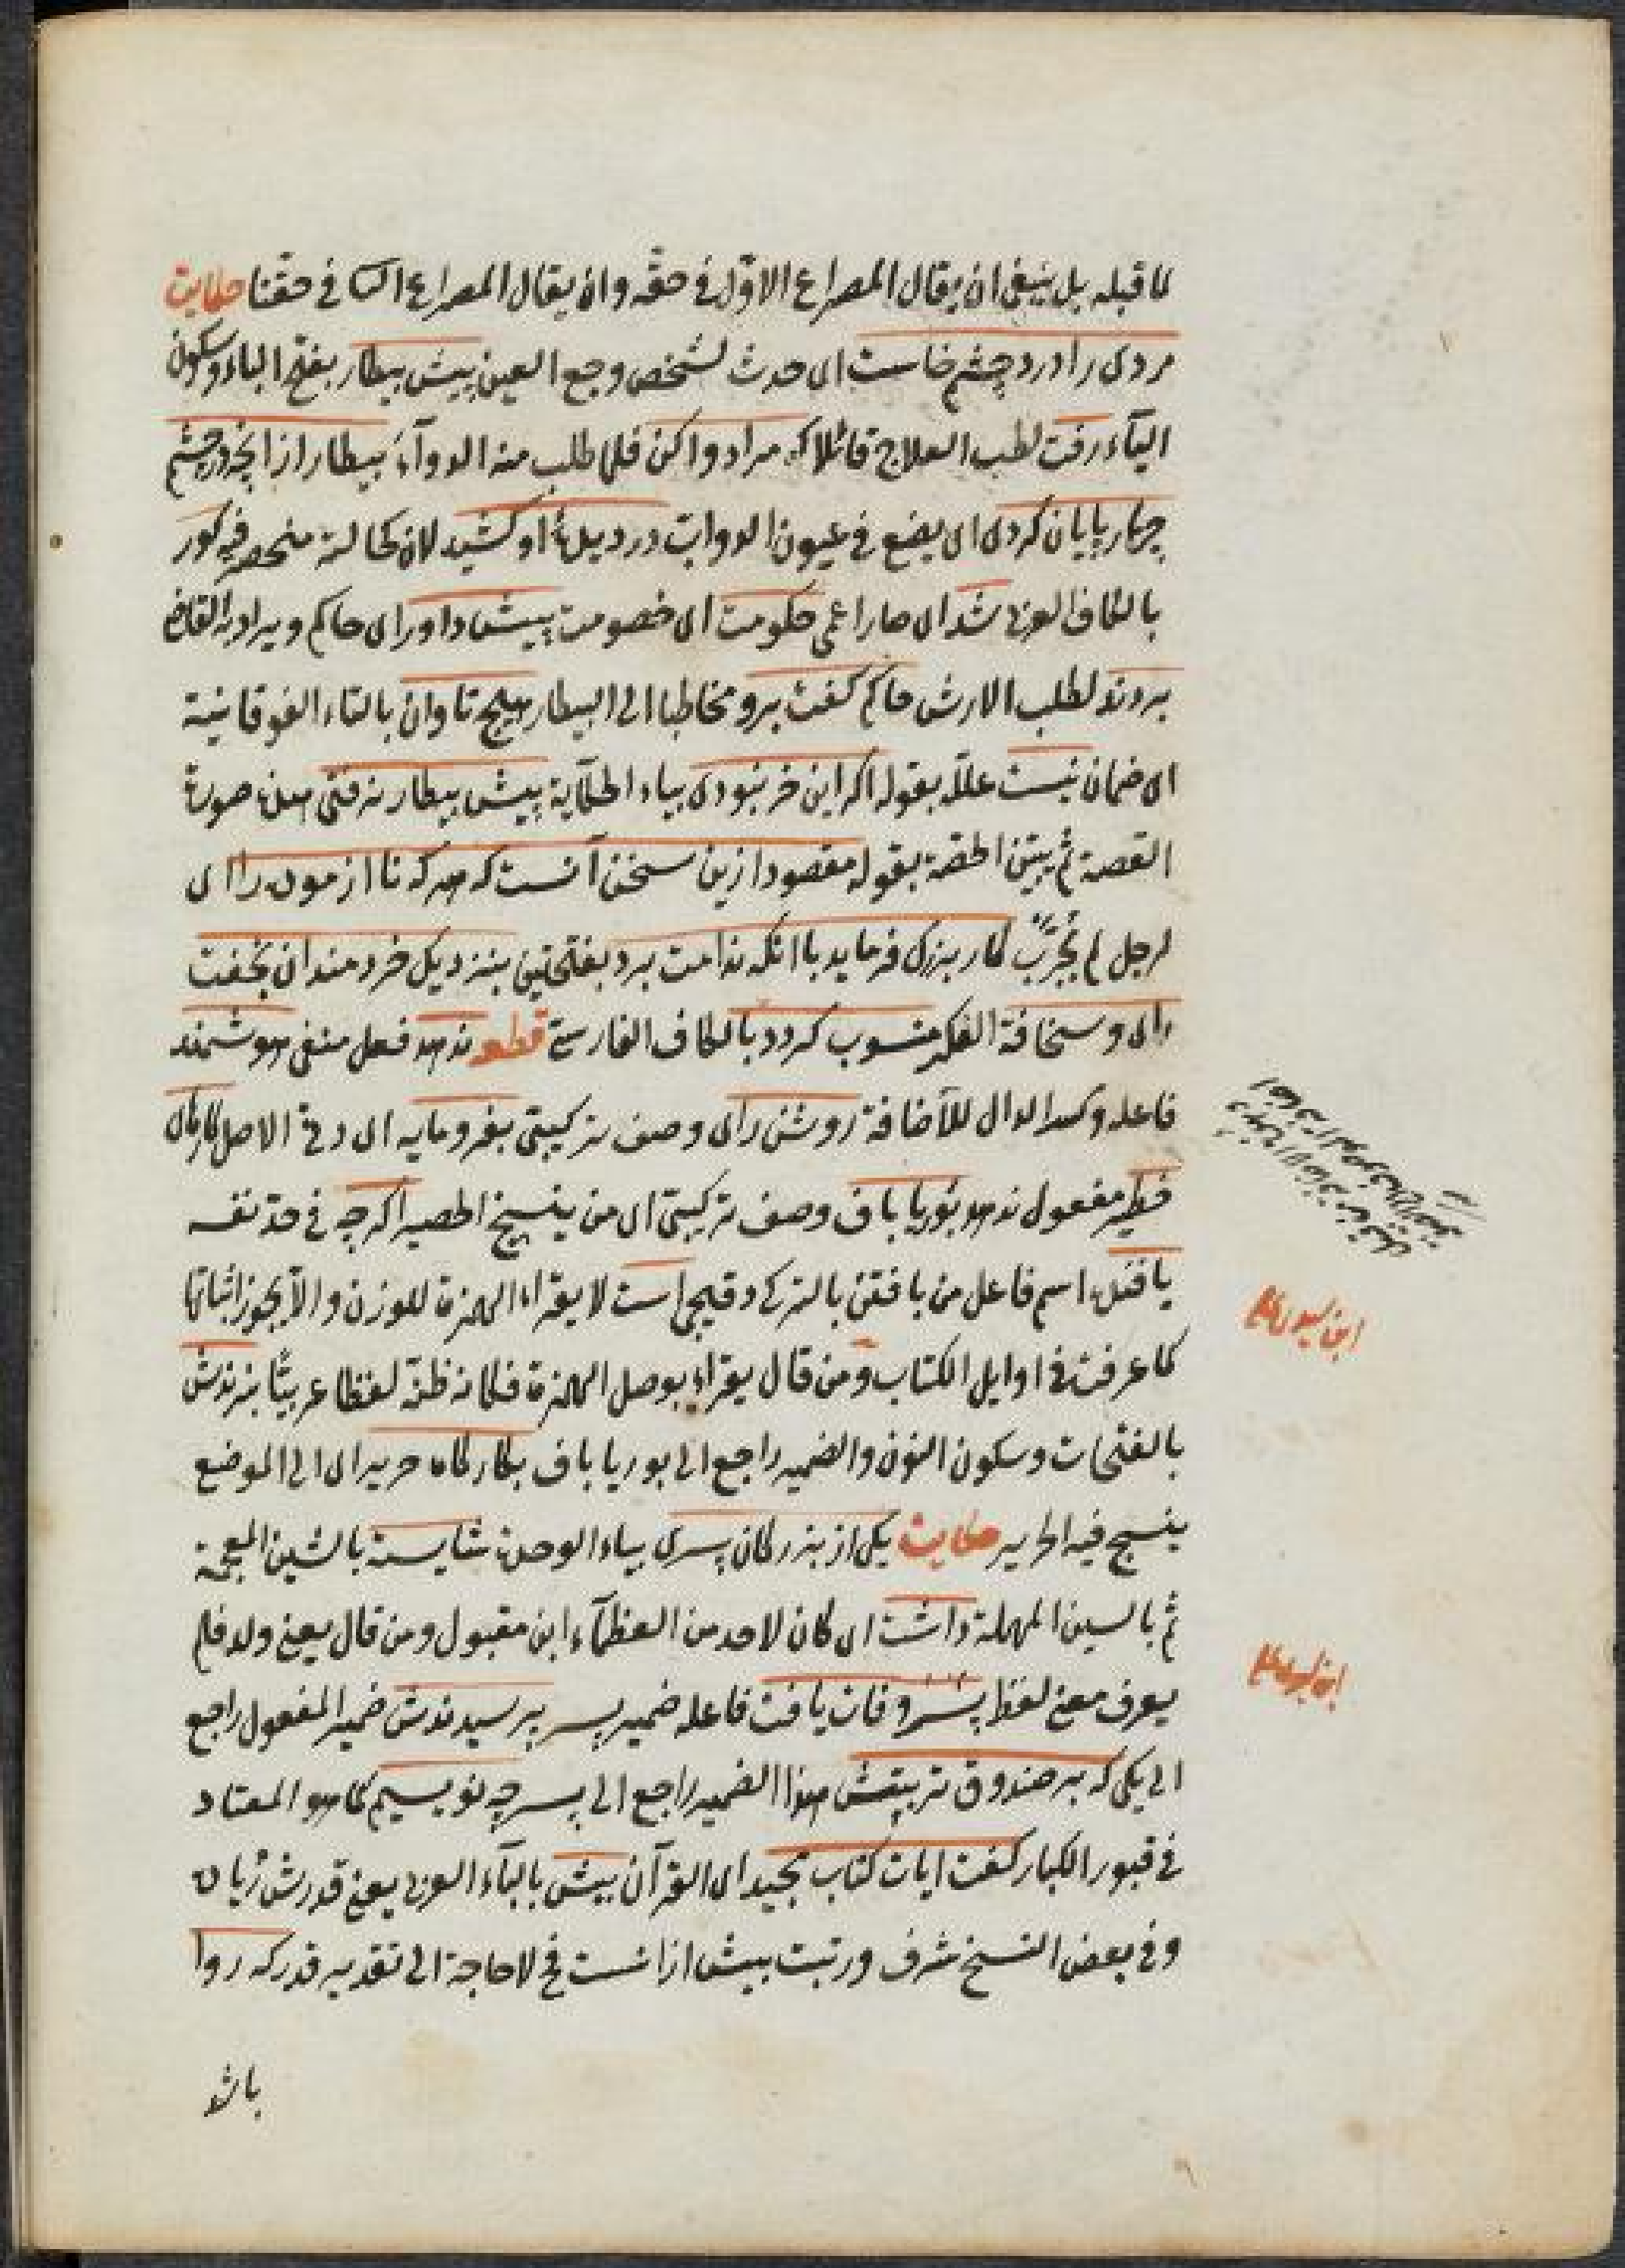 لما قبله بل ينبغى ان يقال المصراع الاوّل فى حقّه وان يقال المصراع الثا فى حقّنا حكايت
مردى را درد چشم خاست اى حدث لشخص وجع العين پيش بيطار بفتح الباء وسكون
اليآء رفت لطب العلاج قائلا كه مرا دوا كن فلما طلب منه الدوآء بيطار از انچه در چشم
چهار پايان كردى اى يضع فى عيون الدوابّ در ديدهٔ او كشيد لان كماله منحصر فيه كور
بالكاف العربى شد اى صار اعمى حكومت اى خصومت پيش داور اى حاكم ويراد به القاضى
بردند لطلب الارش حاكم كفت برو مخاطبا الى البيطار هيچ تاوان بالتاء الفوقانية
اى ضمان نيست علّله بقوله اكر اين خر نبودى بياء الحكآية پيش بيطار نرفتى هذه صورة
القصة ثم بيّن الحصّة بقوله مقصود ازين سخن آنست كه هر كه نا ازموده را اى
لرجل لم يُجرَّبْ كار بزرك فرمايد با انكه ندامت برد بفتحتين بنزديك خردمندان بخفت
راى وسخافة الفكر منسوب كردد بالكاف الفارسى قطعه ندهد فعل منفى هوشمند
فاعله وكسر الدال للاضافة روشن راى وصف تركيبى بفرومايه اى دنى الاصل كارهاى
خطير مفعول ندهد بوريا باف وصف تركيبى اى من ينسج الحصير اكرچه فى حدّ نفسه
بافنده اسم فاعل من بافتن بالتركى دقيجى است لا يقراء الهمزة للوزن والا يجوز اثباتها
كما عرفت فى اوايل الكتاب ومن قال يقراء بوصل الهمزة فكانه ظنّه لفظا عربيّا نبرندش
بالفتحات وسكون النون والضمير راجع الى بوريا باف بكاركاه حرير اى الى الموضع
ينسج فيه الحرير حكايت يكى از بزركان پسرى بياء الوحدة شايسته بالشين المعجمة
ثم بالسين المهملة داشت اى كان لاحد من العظمآء ابن مقبول ومن قال يعنى ولد فلم
يعرف معنى لفظ پسر وفات يافت فاعله ضمير پسر پرسيدندش ضمير المفعول راجع
الى يكى كه بر صندوق تربتش هذا الضمير راجع الى پسر چه نويسيم كما هو المعتاد
فى قبور الكبار كفت ايات كتاب مجيد اى القرآن بيش بالبآء العربى يعنى قدرش زياده
وفى بعض النسخ شرف ورتبت بيش ازانست فح لا حاجة الى تقدير قدر كه روا
باشد
ابن سيد على
ابن سيد على